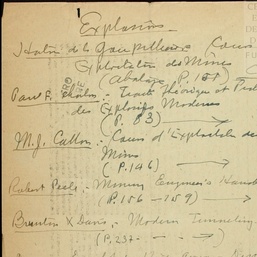 1
Explosion
Haton de la Goupilliere (Cours
Exploitation des Mines
(Abatage P. 157)
Paul F. Chalon - Traité Théorique et
des Explosifs Modernes
(P. 83)
M.J. Callon - Cours d'Exploitation de
Mines
(P. 146)
Robert Peele - Mining Engineer's Handb
P. 156 - 159)
Brunton & Davis - Modern Tunneling
(P. 237 - - -